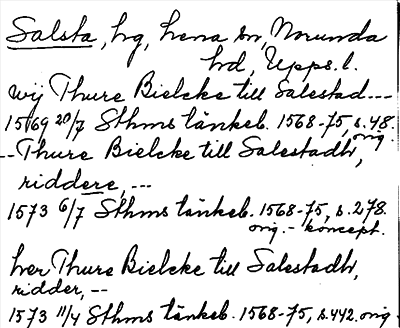 Salsta, hg, Lena sn, Norunda
hd, Upps. l.
wij Thure Bielcke till Salestad ---
1569 20/7 Sthms tänkeb. 1568-75, s. 48.
orig.
-- Thure Bielcke till Salestadh,
riddere, ---
1573 6/7 Sthms tänkeb. 1568-75, s. 278.
orig. - koncept.
her Thure Bielcke till Salestadh,
ridder, --
1573 11/4 Sthms tänkeb. 1568-75, s. 442. orig